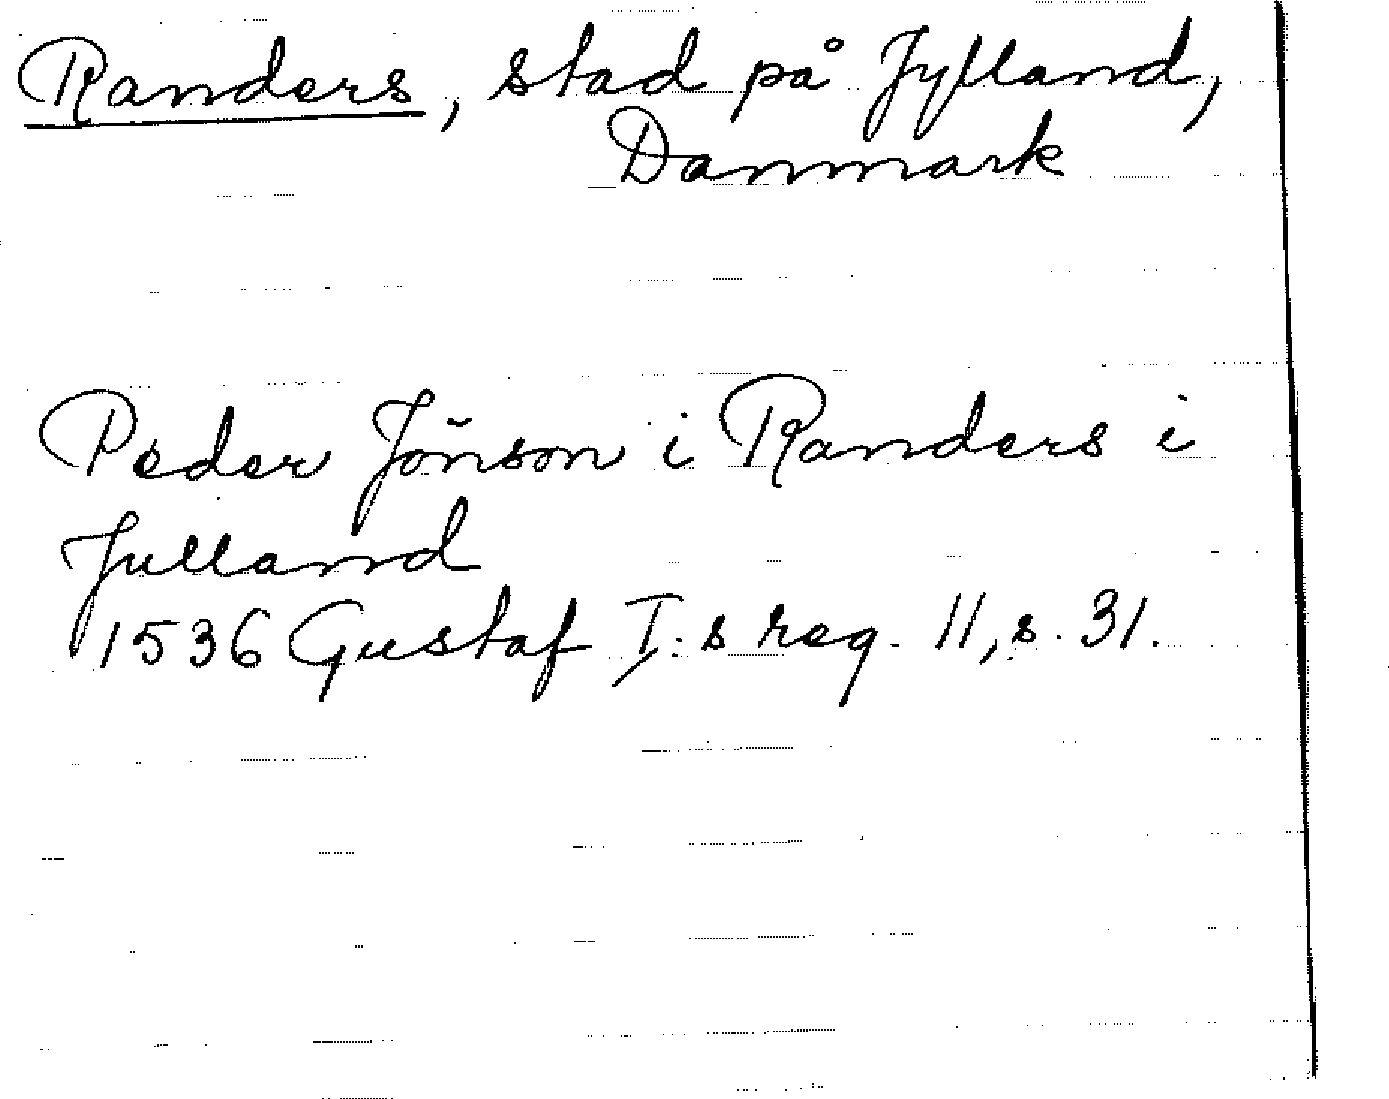 Randers, stad på Jylland,
Danmark
Peder Jönson i Randers i
Julland
1536 Gustaf I:s reg. 11, s. 31.